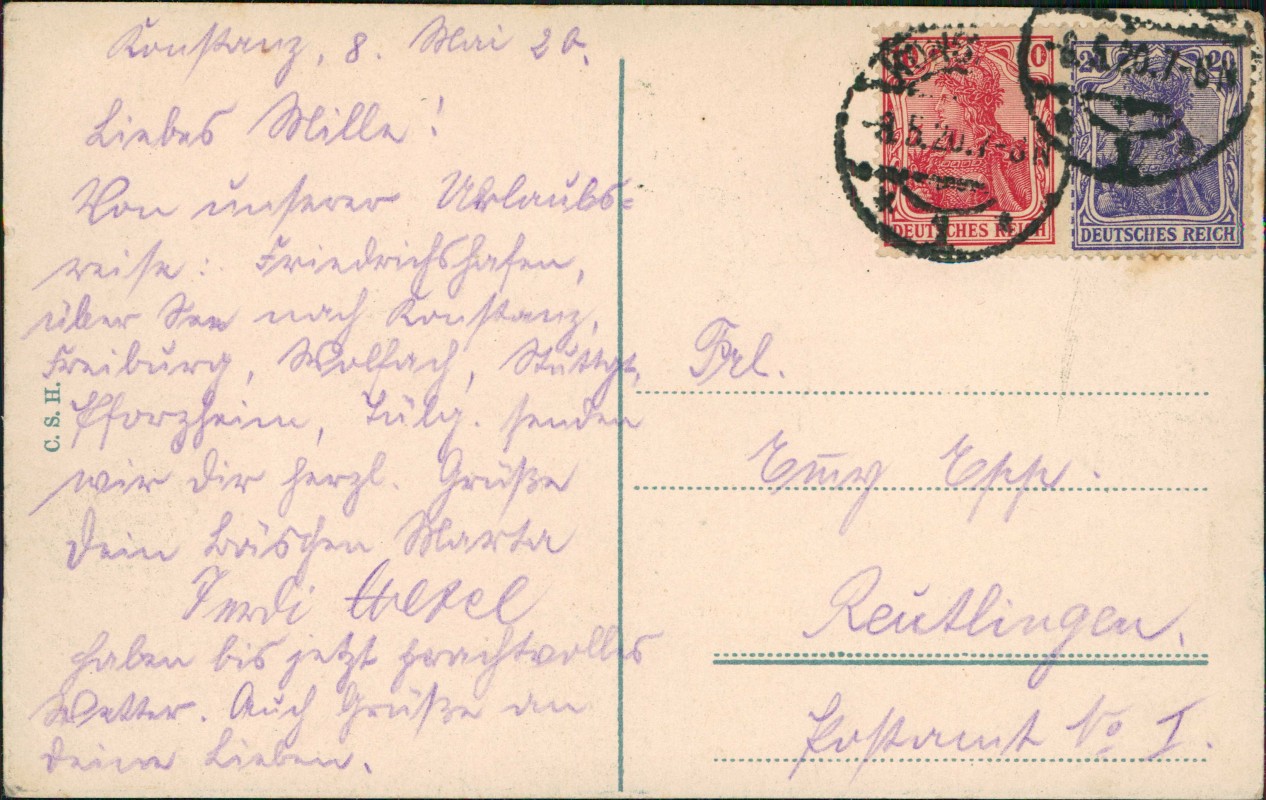 Konstanz, 8. Mai 20.
Liebes Mille!
Von unserer Urlaubs=
reise: Friedrichshafen,
über See nach Konstanz,
Freiburg, Wolfach, Stuttgt,
Pforzheim, senden
wir dir herzl. Grüße
Dein Bäschen Marta
Ferdi
haben bis jetzt prachtvolles
Wetter. Auch Grüße an
deine Lieben.
C. S. H.
DEUTSCHES REICH
DEUTSCHES REICH
20
-8.5.20.7-8N
1
-8.5.20.7-8N
1
Frl.
Em̅y Epp.
Reutlingen.
Postamt No I.